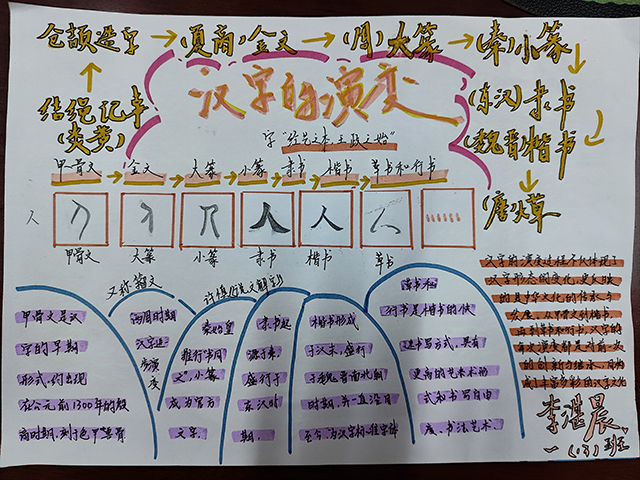 仓颉造字→(夏商)金文→(周)大篆→(秦)小篆
结绳记事
(炎黄)
(东汉)隶书
(魏晋)楷书
(唐)草
汉字的演变
字"经艺之本 王政之始"
甲骨文→金文→大篆→小篆→隶书→楷书→草书和行书
人
甲骨文 大篆 小篆 隶书 楷书 草书
甲骨文是汉
字的早期
形式,约出现
在公元前1300年的殷
商时期,刻于龟甲兽骨
又称籀文
西周时期
汉字逐
步演
变
许慎《说文解字》
秦始皇
推行"书同
文",小篆
成为官方
文字。
隶书起
源于秦,
盛行于
东汉时
期。
楷书形成
于汉末,盛行
于魏晋南北朝
时期,并一直沿用
至今,为汉字标准字体
草书和
行书是楷书的快
速书写方式,具有
更高的艺术形
式和书写自由
度、书法艺术。
汉字的演变过程不仅体现了
汉字形态的变化,更反映
的是中华文化的传承与
发展。从甲骨文到楷书,
再到草书和行书,汉字的
每次演变都是对前代
的创新与继承,共同构
成丰富多彩的汉字文化
李湛晨
一(13)班